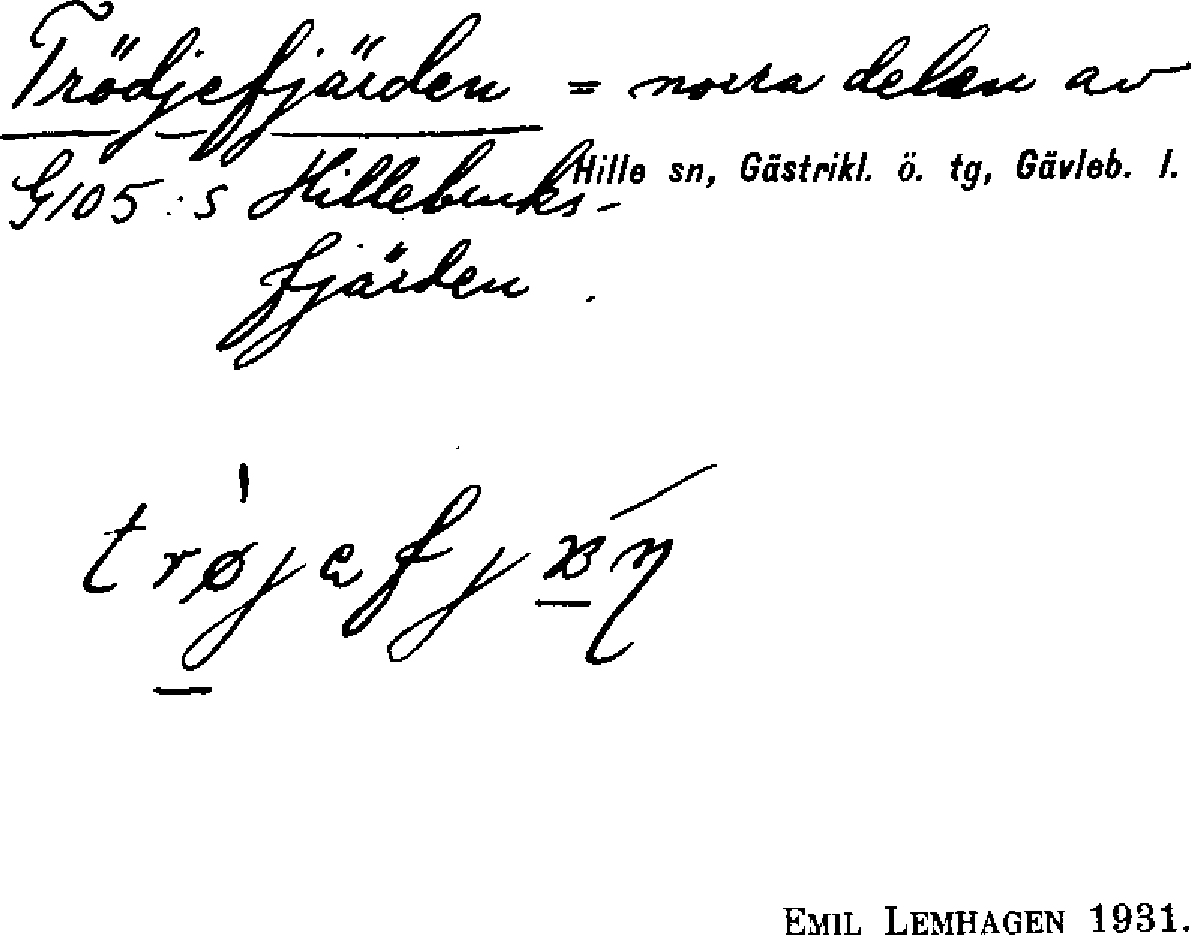 Trödjefjärden = norra delen av
Hille sn, Gästrikl. ö. tg, Gävleb. l.
G105:S Hillebuks-
fjärden.
EMIL LEMHAGEN 1931.